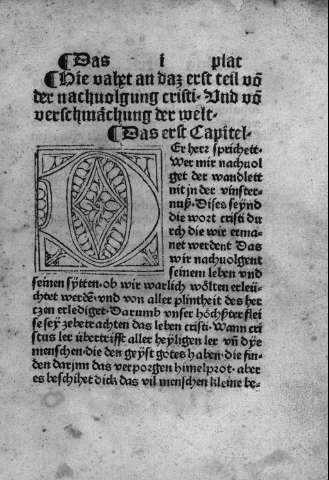 ¶Das i plat
¶Hie vahet an daz erst teil vō
der nachuolgung cristi· Vnd vō
verschmächung der welt·
¶Das erst Capitel·
DEr herr sprichett·
Wer mir nachuol
get der wandlett
nit in der vinster-
nuß· Dises seynd
die wort cristi du
rch die wir erma-
net werdent Das
wir nachuolgent
seinem leben vnd
seinen sytten· ob wir warlich wöllen erleü-
chtet werdē· vnd von aller plintheit des her
tzen erlediget· Darumb vnser höchster flei
se sey ze betrachten das leben cristi· Wann cri
stus ler übertrifft aller heyligen ler vñ dye
menschen· die den geyst gotes haben· die fin-
den darjnn das verporgen himelprot· aber
es beschihet dick das vil menschen kleine be-